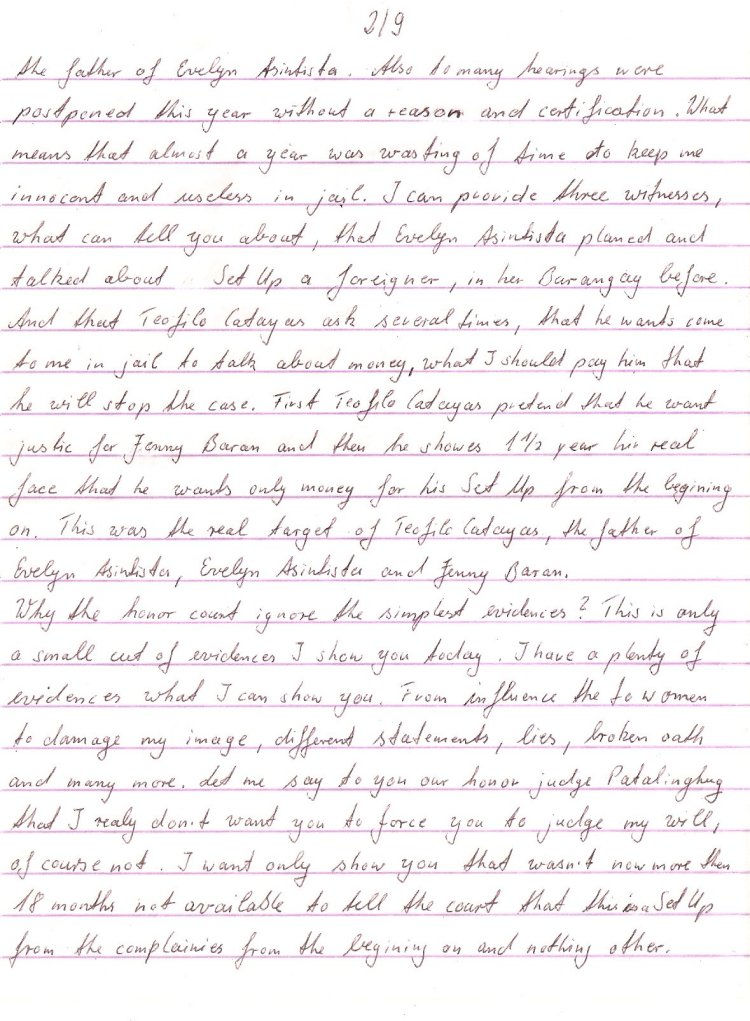 2/9
the father of Evelyn Asintista. Also to many hearings were
postpened this year without a reason and certification. What
means that almost a year was wasting of time to keep me
innocent and useless in jail. I can provide three witnesses,
what can tell you about, that Evelyn Asintista planed and
talked about Set Up a foreigner, in her Barangay before.
And that Teofilo Catayas ask several times, that he wants come
to me in jail to talk about money, what I should pay him that
he will stop the case. First Teofilo Catayas pretend that he want
justic for Jenny Baran and then he showes 1 1/2 year his real
face that he wants only money for his Set Up from the begining
on. This was the real target of Teofilo Catayas, the father of
Evelyn Asintista, Evelyn Asintista and Jenny Baran.
Why the honor court ignore the simplest evidences? This is only
a small cut of evidences I show you today. I have a plenty of
evidences what I can show you. From influence the to women
to damage my image, different statements, lies, broken oath
and many more. Let me say to you our honor judge Patalinghug
that I realy don't want you to force you to judge my will,
of course not. I want only show you that wasn't now more then
18 months not available to tell the court that this is a Set Up
from the complainies from the begining on and nothing other.